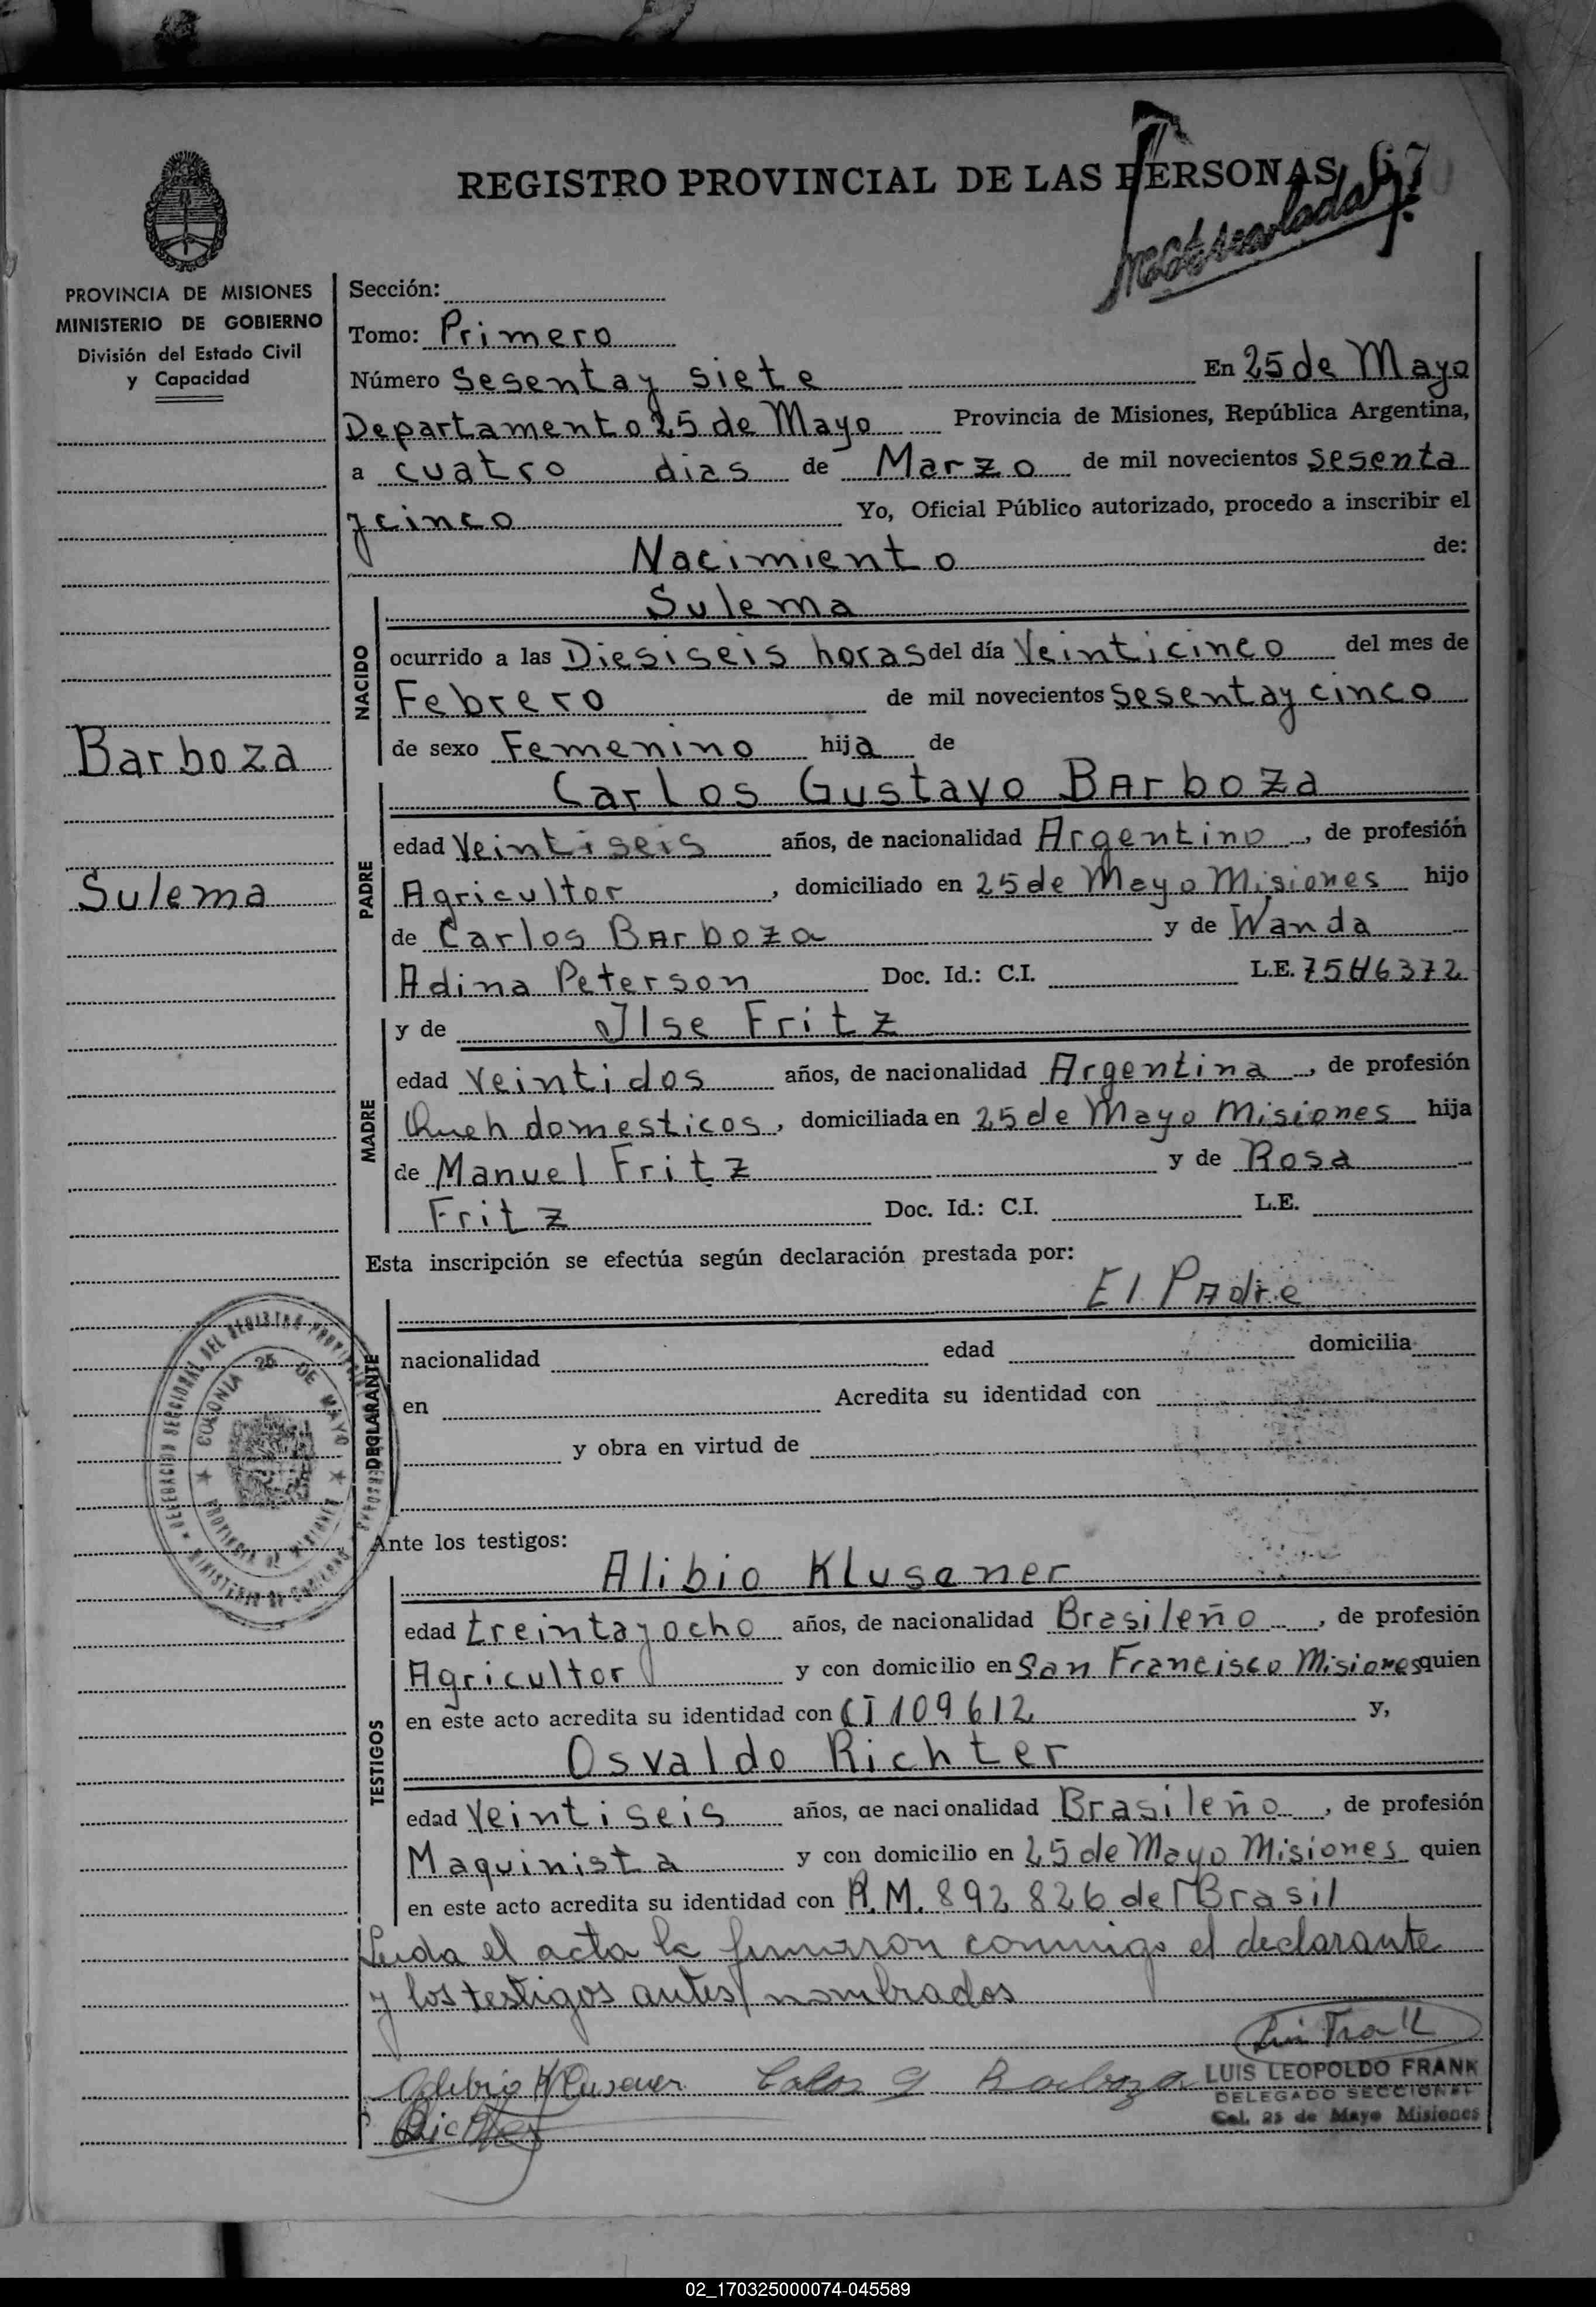 REGISTRO PROVINCIAL DE LAS PERSONAS 67
PROVINCIA DE MISIONES
MINISTERIO DE GOBIERNO
División del Estado Civil
y Capacidad
Sección:
Tomo: Primero
Número Sesenta y siete En 25 de Mayo
Departamento 25 de Mayo Provincia de Misiones, República Argentina,
a cuatro dias de Marzo de mil novecientos sesenta
y cinco Yo, Oficial Público autorizado, procedo a inscribir el
Nacimiento de:
NACIDO
Sulema
ocurrido a las Diesiseis horas del día Veinticinco del mes de
Febrero de mil novecientos sesenta y cinco
de sexo Femenino hija de
Barboza
Sulema
PADRE
Carlos Gustavo Barboza
edad Veintiseis años, de nacionalidad Argentino, de profesión
Agricultor, domiciliado en 25 de Mayo Misiones hijo
de Carlos Barboza y de Wanda
Adina Peterson Doc. Id.: C.I. L.E. 7546372
MADRE
y de Ilse Fritz
edad Veintidos años, de nacionalidad Argentina, de profesión
domesticos, domiciliada en 25 de Mayo Misiones hija
de Manuel Fritz y de Rosa
Fritz Doc. Id.: C.I. L.E.
Esta inscripción se efectúa según declaración prestada por:
El Padre
DECLARANTE
nacionalidad edad domicilia
en Acredita su identidad con
y obra en virtud de
COLONIA 25 DE MAYO
PROVINCIA DE MISIONES
Ante los testigos:
TESTIGOS
Alibio Klusener
edad treinta y ocho años, de nacionalidad Brasileño, de profesión
Agricultor y con domicilio en San Francisco Misiones quien
en este acto acredita su identidad con CI 109612 y,
Osvaldo Richter
edad Veintiseis años, de nacionalidad Brasileño, de profesión
Maquinista y con domicilio en 25 de Mayo Misiones quien
en este acto acredita su identidad con R.M. 892826 del Brasil
Leida el acta la firmaron conmigo el declarante
y los testigos antes nombrados
Alibio Klusener Carlos G Barboza
Richter
LUIS LEOPOLDO FRANK
DELEGADO SECCIONAL
Col. 25 de Mayo Misiones
02_170325000074-045589